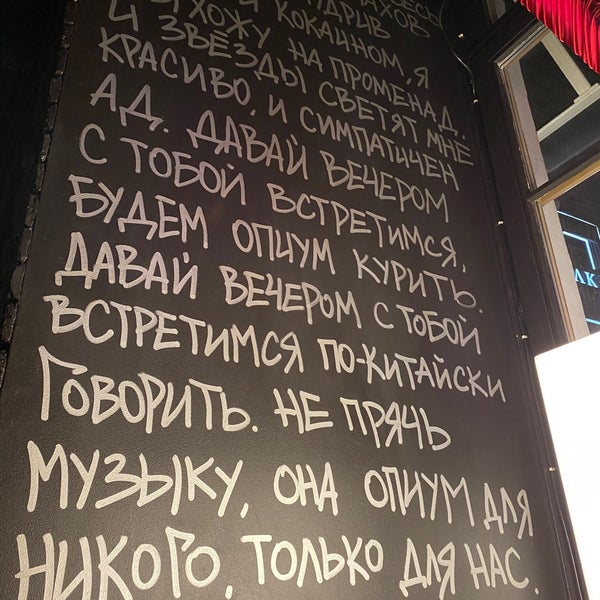 КОКАИНОМ, Я
ВЫХОЖУ НА ПРОМЕНАД.
И ЗВЁЗДЫ СВЕТЯТ МНЕ
КРАСИВО, И СИМПАТИЧЕН
АД. ДАВАЙ ВЕЧЕРОМ
С ТОБОЙ ВСТРЕТИМСЯ,
БУДЕМ ОПИУМ КУРИТЬ.
ДАВАЙ ВЕЧЕРОМ С ТОБОЙ
ВСТРЕТИМСЯ ПО-КИТАЙСКИ
ГОВОРИТЬ. НЕ ПРЯЧЬ
МУЗЫКУ, ОНА ОПИУМ ДЛЯ
НИКОГО, ТОЛЬКО ДЛЯ НАС.